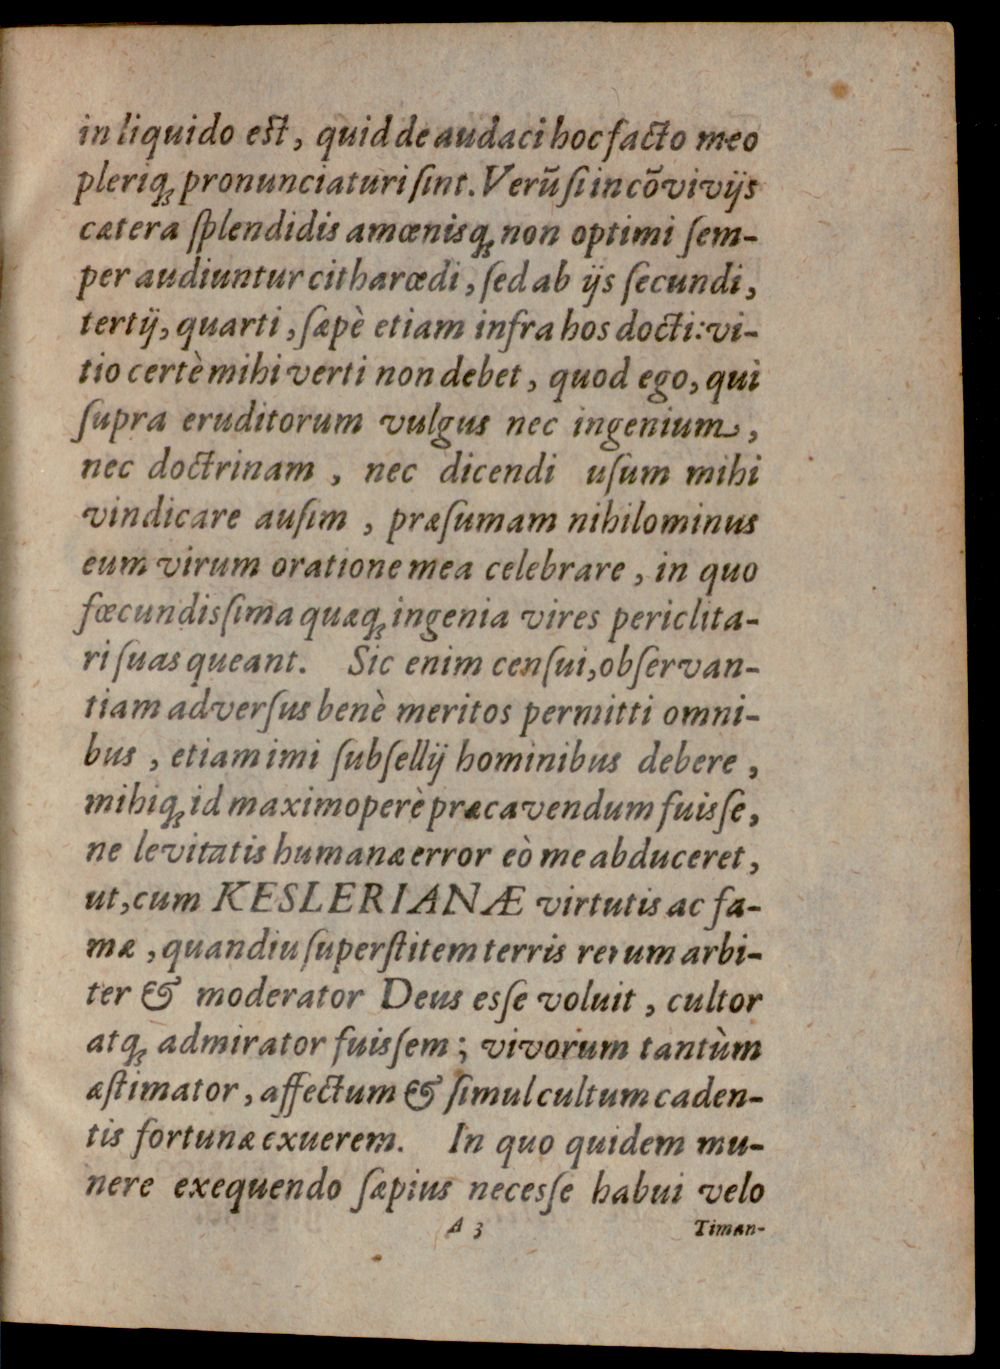 in liquido est, quid de audaci hoc facto meo
pleriq́ꝫ pronunciaturi ſint. Verũ ſi in cõvivijs
cætera ſplendidis amœnisq́ꝫ non optimi ſem-
per audiuntur citharœdi, ſed ab ijs ſecundi,
tertij, quarti, ſæpè etiam infra hos docti: vi-
tio certè mihi verti non debet, quod ego, qui
ſupra eruditorum vulgus nec ingenium,
nec doctrinam, nec dicendi uſum mihi
vindicare auſim, præſumam nihilominus
eum virum oratione mea celebrare, in quo
fœcundisſima quæq́ꝫ ingenia vires periclita-
ri ſuas queant. Sic enim cenſui, obſervan-
tiam adverſus benè meritos permitti omni-
bus, etiam imi ſubſellij hominibus debere,
mihiq́ꝫ id maximoperè præcavendum fuisſe,
ne levitatis humanæ error eò me abduceret,
ut, cum KESLERIANÆ virtutis ac fa-
mæ, quandiu ſuperſtitem terris rerum arbi-
ter & moderator Deus esſe voluit, cultor
atq́ꝫ admirator fuisſem; vivorum tantùm
æſtimator, affectum & ſimul cultum caden-
tis fortunæ exuerem. In quo quidem mu-
nere exequendo ſæpius necesſe habui velo
A 3 Timan-